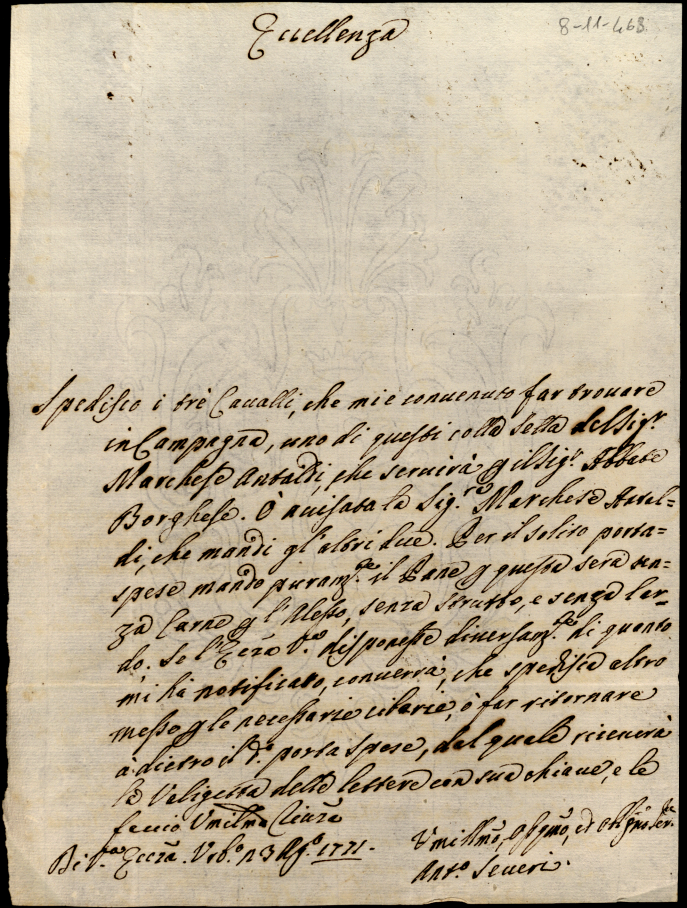 8-11-468
Eccellenza
Spedisco i trè Cavalli, che mi è convenuto far trovare
in Campagna, uno di questi colla sella del Sig.r
Marchese Antaldi, che servirà p il Sig.r Abbate
Borghese. Ò avisata la Sig.ra Marchesa
di, che mandi gl'altri due. Per il solito porta=
spese mando puram.te il Pane p questa sera sen=
za Carne p l'Alesso, senza strutto, e senza lar=
do. Se l'Ecc̃za V.ra disponesse diversam.te di quanto
mi hà notificato, converrà, che spedisca altro
messo p le necessarie cibarie, ò far ritornare
à dietro il d.o porta spese, dal quale riceverà
la Valigetta delle lettere con sua chiave, e le
faccio Umilm̃a
Di V.ra Ecc̃za. Urb.o 23 Ag.o 1771.
Umilm̃o, ed Oblg̃mo Ser.re
Ant.o Severi.